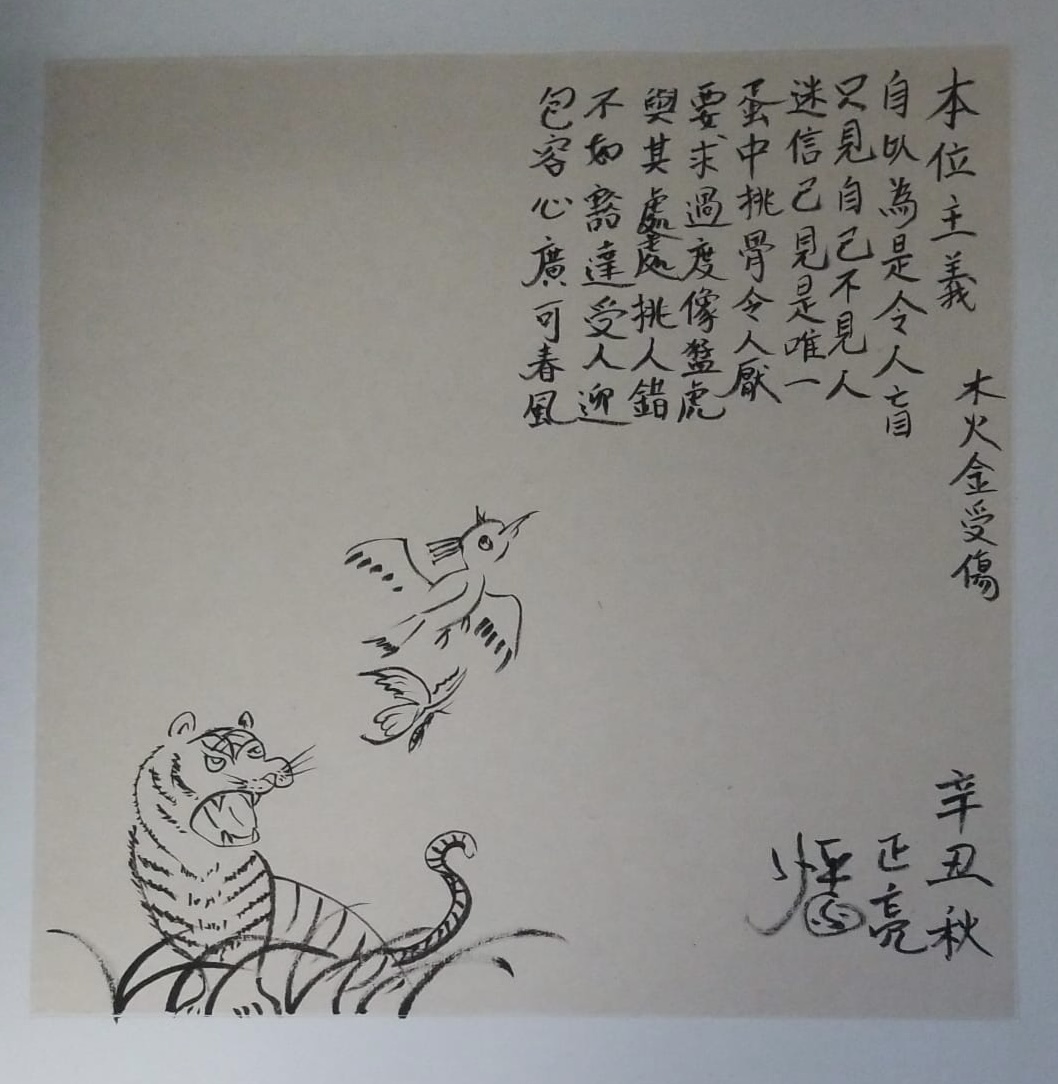 本位主義
木火金受傷
自以為是令人盲
只見自己不見人
迷信己見是唯一
蛋中挑骨令人厭
要求過度像猛虎
與其處處挑人錯
不如豁達受人迎
包容心廣可春風
辛丑秋
正亮